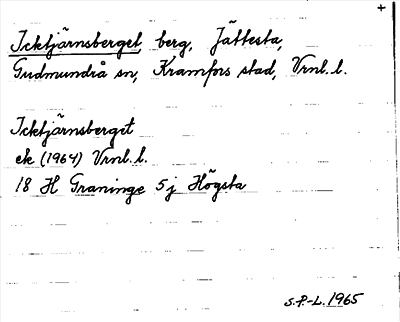 +
Icktjärnsberget, berg, Jättesta,
Gudmundrå sn, Kramfors stad, Vrnl.l.
Icktjärnsberget
ek (1964) Vrnl.l.
18 H Graninge 5j Högsta
S.P.-L. 1965